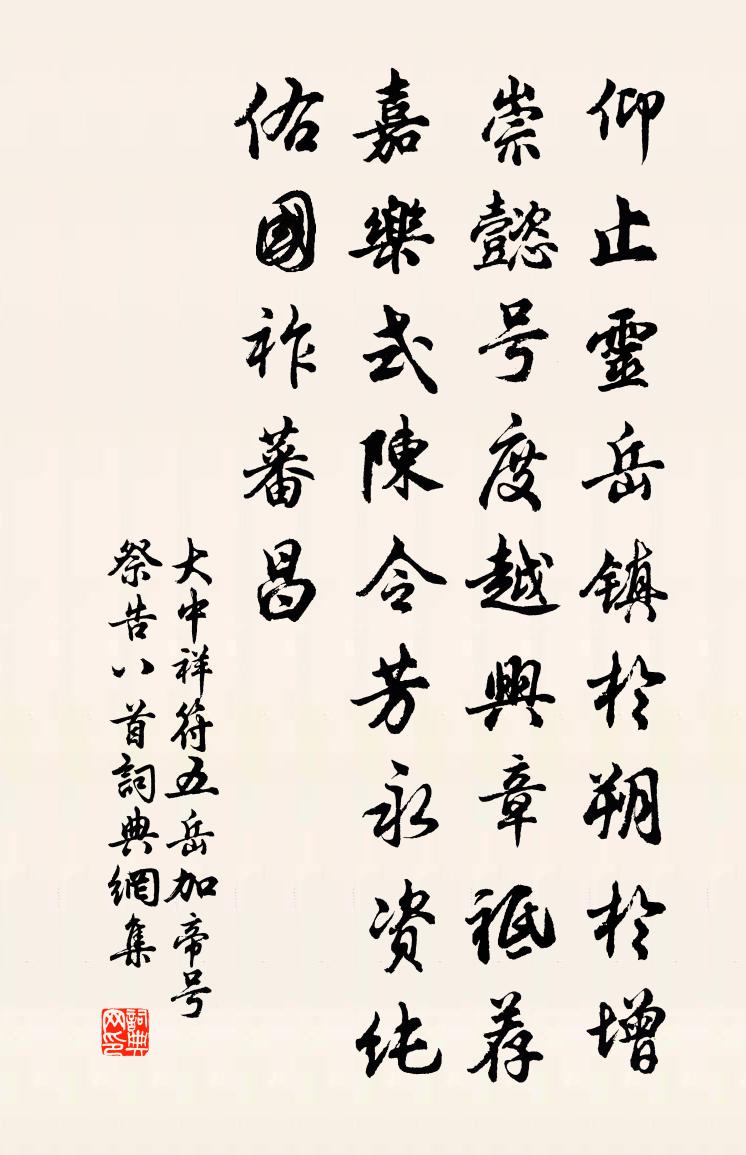 仰止靈岳镇於朔於增
崇懿号度越興章祗荐
嘉樂式陳令芳永资纯
佑國祚蕃昌
大中祥符五岳加帝号
祭告八首詞典網集
詞典网印